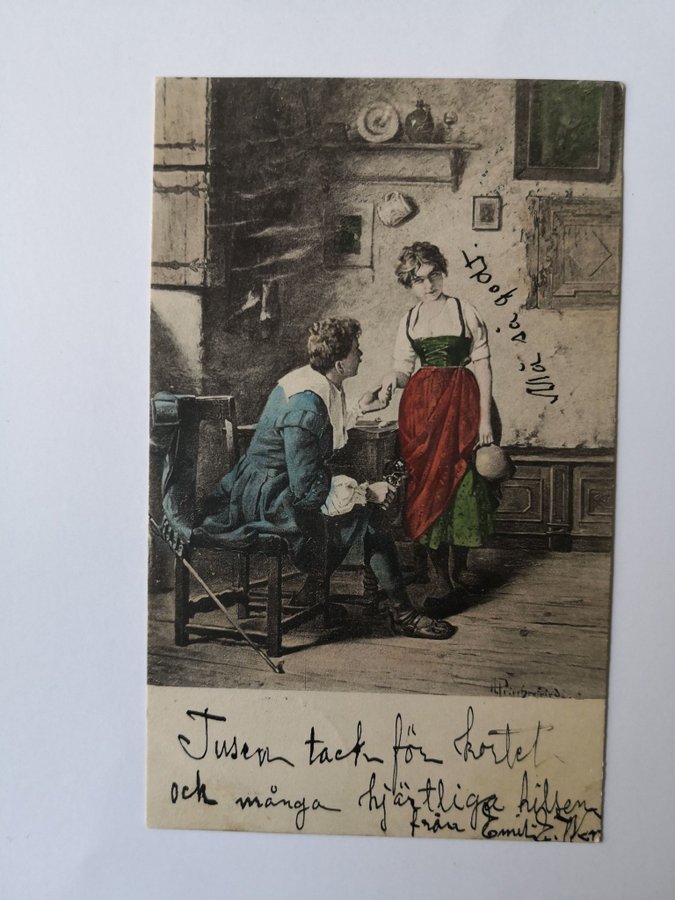 Må så godt.
Tusen tack för kortet
och många hjärtliga hilsen
från Emil